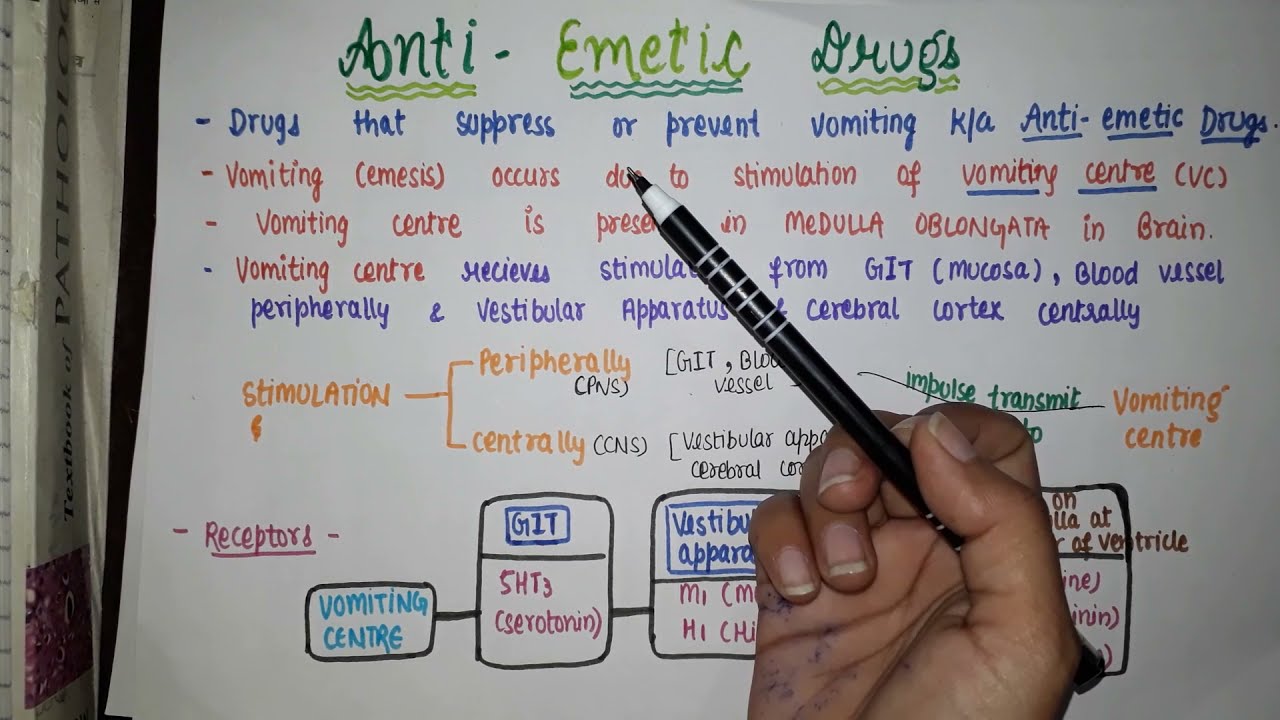 Textbook of PATHOLO
Anti- Emetic Drugs
- Drugs that suppress or prevent vomiting k/a Anti-emetic Drugs.
- Vomiting (emesis) occurs due to stimulation of vomiting centre (VC)
- Vomiting centre is prese in MEDULLA OBLONGATA in Brain.
- Vomiting centre recieves stimulat from GIT (mucosa), Blood vessel
peripherally & vestibular Apparatus & cerebral cortex centrally
Peripherally [GIT, Bloo
(PNS) vessel
STIMULATION
impulse transmit
to
Vomiting
centre
centrally (CNS) [vestibular appa
cerebral cor
- Receptors -
VOMITING
CENTRE
GIT
5HT3
(serotonin)
Vestibul
appara
M1 (m
H1 (Hi
on
lla at
r of ventricle
ine)
inin)